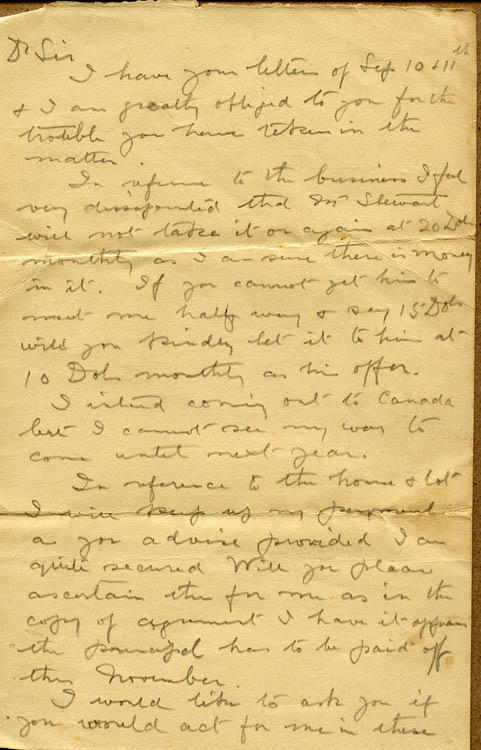 Dr Sir
I have your letters of Sep 10 & 11th
& I am greatly obliged to you for the
trouble you have taken in the
matter.
In reference to the business I feel
very dissapointed that Mr Stewart
will not take it on again at 20 Dols
monthly as I am sure there is money
in it. If you cannot get him to
meet me half way & say 15 Dols
will you kindly let it to him at
10 Dols monthly as his offer.
I intend coming out to Canada
but I cannot see my way to
come until next year.
In reference to the house & lot
I will keep up my payment
as you advise provided I am
quite secured Will you please
ascertain this for me as in the
copy of agreement I have it appears
the principal has to be paid off
this November.
I would like to ask you if
you would act for me in these